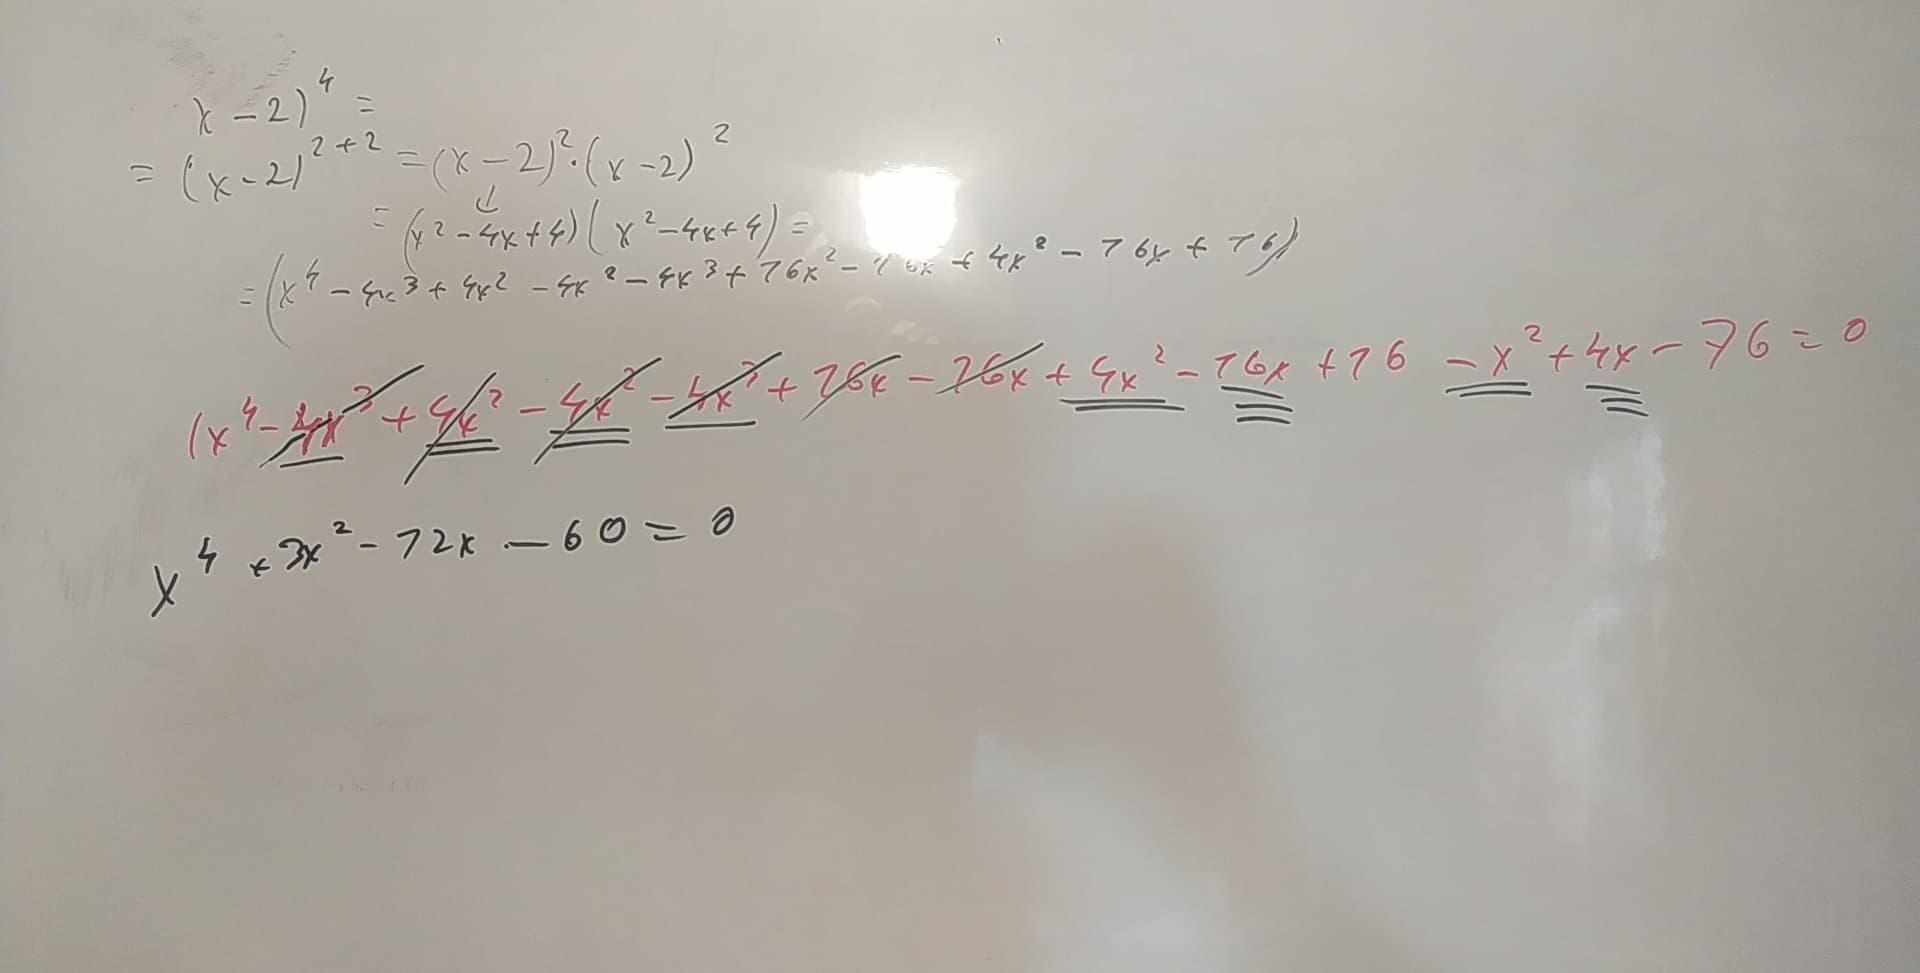 x - 2)⁴ =
= (x - 2)²⁺² = (x - 2)² · (x - 2)²
= (x² - 4x + 4)(x² - 4x + 4) =
= (x⁴ - 4x³ + 4x² - 4x² - 4x³ + 16x² - 16x + 4x² - 16x + 16)
(x⁴ - 4x³ + 4x² - 4x² - 4x³ + 16x - 16x + 4x² - 16x + 16 - x² + 4x - 16 = 0
x⁴ + 3x² - 12x - 60 = 0